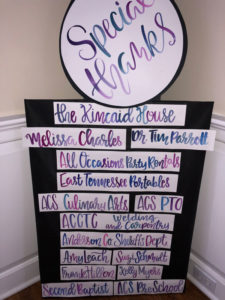 Special
thanks
the Kincaid House
Melissa Charles Dr. Tim Parrott
All Occasions Party Rentals
East Tennessee Portables
ACS Culinary Arts ACS PTO
ACCTC Welding and Carpentry
Anderson Co Sheriff's Dept.
Amy Leach Suzi Schmidt
Frank Hilton Kelly Myers
Second Baptist ACS PreSchool